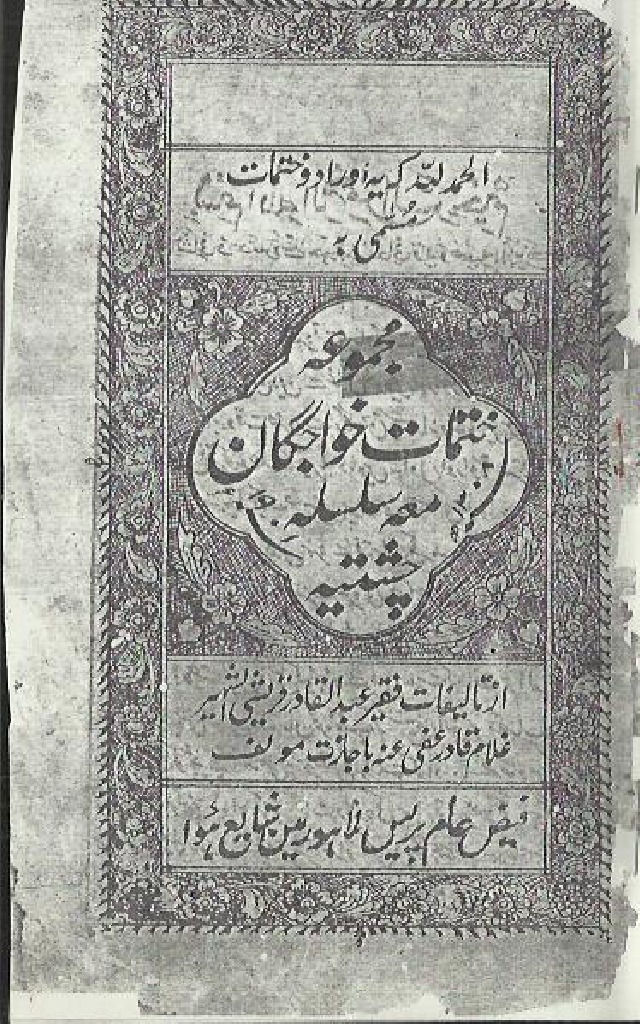 الحمد للہ کہ یہ اوراد و ختمات
مسمی بہ
مجموعہ
ختمات خواجگان
معہ سلسلہ
چشتیہ
از تالیفات فقیر عبد القادر قریشی الشہیر
غلام قادر عفی عنہ باجازت مولف
فیض عام پریس لاہور مین شایع ہؤا